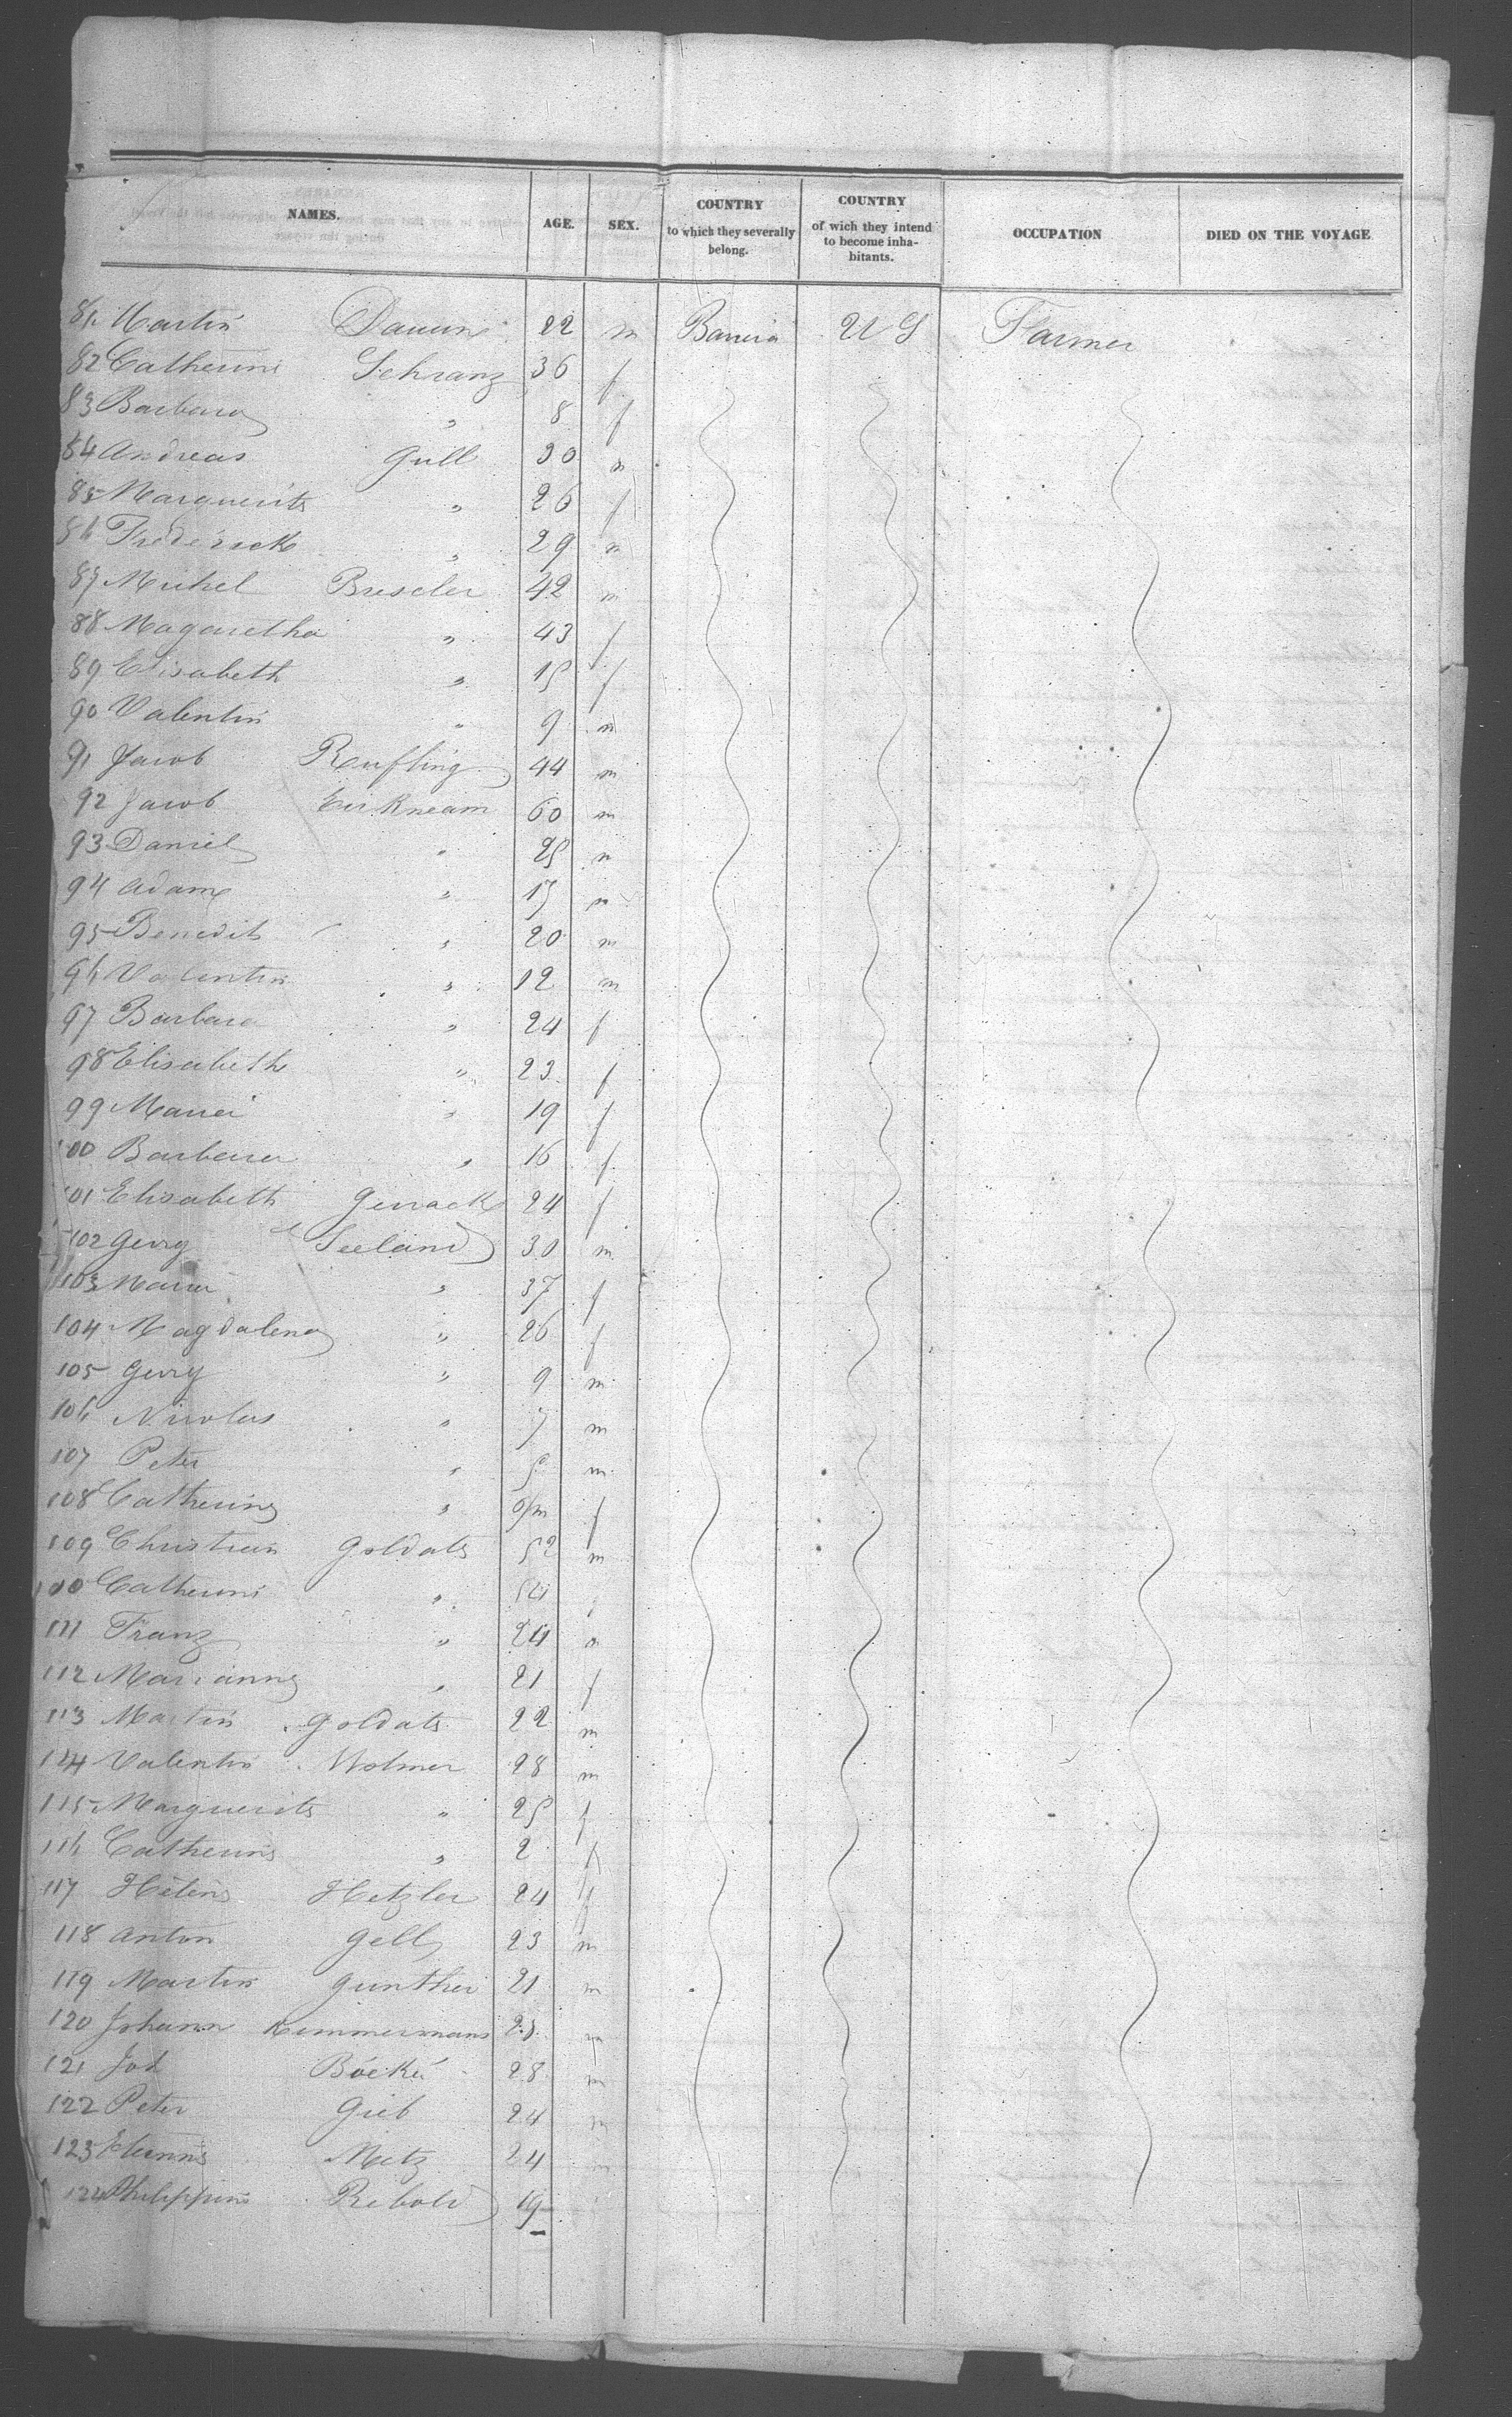 NAMES. AGE. SEX. COUNTRY to which they severally belong. COUNTRY of wich they intend to become inha- bitants. OCCUPATION DIED ON THE VOYAGE
81. Martin 22 m U S Farmer
82 Catherine Schranz 36 f
83 Barbara " 8 f
84 Andreas Gull 30 m
85 Marguerite " 26 f
86 Frederick " 29 m
87 Michel Bresler 42 m
88 Magaretha " 43 f
89 Elisabeth " 15 f
90 Valentin " 9 m
91 Jacob Reufling 44 m
92 Jacob 60 m
93 Daniel " 25 m
94 Adam " 17 m
95 Benedit " 20 m
96 Valentin " 12 m
97 Barbara " 24 f
98 Elisabeth " 23 f
99 Maria " 19 f
100 Barbara " 16 f
101 Elisabeth 24 f
102 Georg Seeland 30 m
103 Maria " 37 f
104 Magdalena " 26 f
105 Georg " 9 m
106 Nicolas " 7 m
107 Peter " 5 m
108 Catherine " f
109 Christian Goldats 52 m
100 Catherine " 54 f
111 Franz " 24 m
112 Marianne " 21 f
113 Martin Goldats 22 m
114 Valentin Wolmer 28 m
115 Marguerite " 25 f
116 Catherine " 2 f
117 Helene Hetzler 24 f
118 Anton Gell 23 m
119 Martin Gunther 21 m
120 Johann m
121 Joh 28 m
122 Peter Gieb 24 m
123 Metz 24
124 Philippine Rebold 19